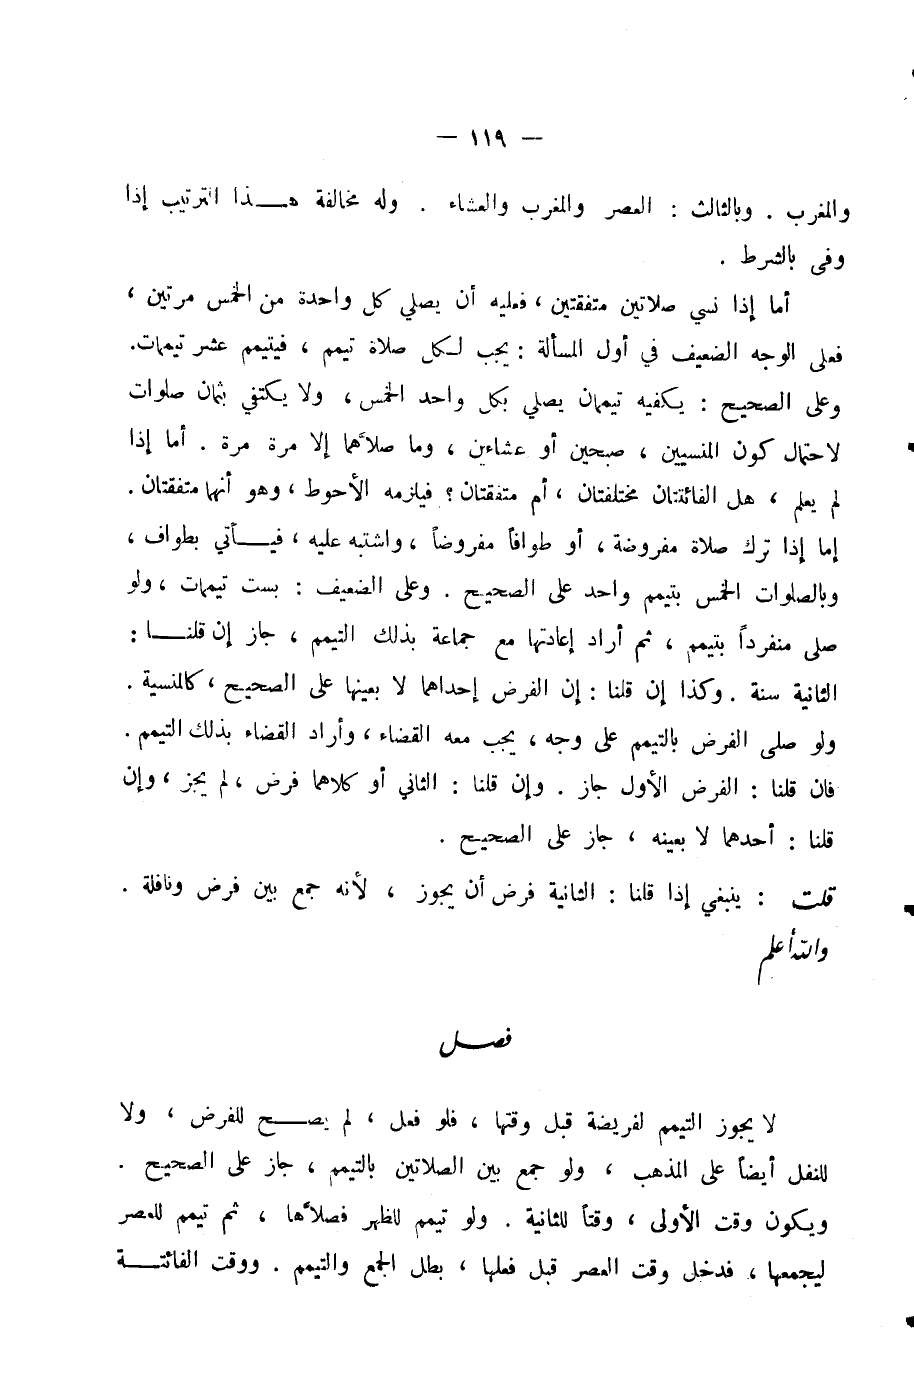 — ١١٩ —
والمغرب . وبالثالث : العصر والمغرب والعشاء . وله مخالفة هـــذا الترتيب إذا
وفى بالشرط .
أما إذا نسي صلاتين متفقتين ، فعليه أن يصلي كل واحدة من الخمس مرتين ،
فعلى الوجه الضعيف في أول المسألة : يجب لكل صلاة تيمم ، فيتيمم عشر تيممات.
وعلى الصحيح : يكفيه تيممان يصلي بكل واحد الخمس ، ولا يكتفي بثمان صلوات
لاحتمال كون المنسيين ، صبحين أو عشاءين ، وما صلاهما إلا مرة مرة . أما إذا
لم يعلم ، هل الفائتتان مختلفتان ، أم متفقتان ؟ فيلزمه الأحوط ، وهو أنهما متفقتان .
إما إذا ترك صلاة مفروضة ، أو طوافاً مفروضاً ، واشتبه عليه ، فيــأتي بطواف ،
وبالصلوات الخمس بتيمم واحد على الصحيح . وعلى الضعيف : بست تيممات ، ولو
صلى منفرداً بتيمم ، ثم أراد إعادتها مع جماعة بذلك التيمم ، جاز إن قلنــا :
الثانية سنة . وكذا إن قلنا : إن الفرض إحداهما لا بعينها على الصحيح ، كالمنسية .
ولو صلى الفرض بالتيمم على وجه ، يجب معه القضاء ، وأراد القضاء بذلك التيمم .
فان قلنا : الفرض الأول جاز . وإن قلنا : الثاني أو كلاهما فرض ، لم يجز ، وإن
قلنا : أحدهما لا بعينه ، جاز على الصحيح .
قلت : ينبغي إذا قلنا : الثانية فرض أن يجوز ، لأنه جمع بين فرض ونافلة .
والله أعلم
فصـل
لا يجوز التيمم لفريضة قبل وقتها ، فلو فعل ، لم يصــح للفرض ، ولا
للنفل أيضاً على المذهب ، ولو جمع بين الصلاتين بالتيمم ، جاز على الصحيح .
ويكون وقت الأولى ، وقتاً للثانية . ولو تيمم للظهر فصلاها ، ثم تيمم للعصر
ليجمعها ، فدخل وقت العصر قبل فعلها ، بطل الجمع والتيمم . ووقت الفائتــة